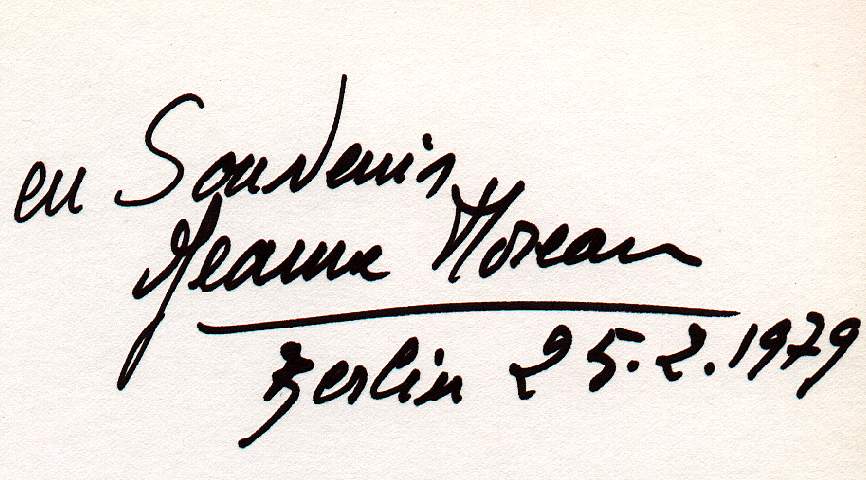 en Souvenir
Jeanne Moreau
Berlin 25.2.1979